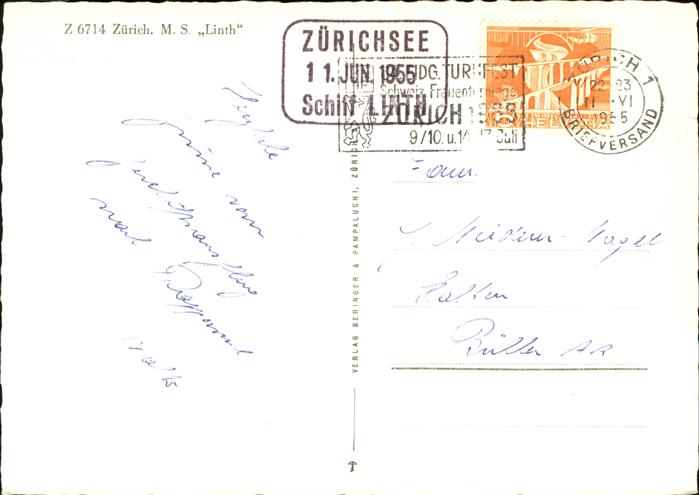 Z 6714 Zürich. M. S. „Linth“
ZÜRICHSEE
11. JUN. 1955
Schiff LINTH
EIDG. TURNFEST
Schweiz. Frauenturntage
ZÜRICH 1955
9./10. u. 14.-17. Juli
ZÜRICH 1
22-23
11. VI
1955
BRIEFVERSAND
Herzliche
Grüsse vom
Geschäftsausflug
nach
VERLAG BERINGER & PAMPALUCHI, ZÜRICH
Fam.
Vogel
Bühler AR